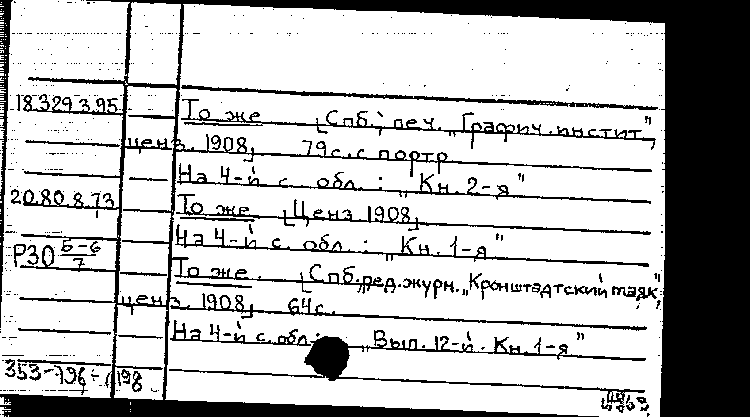 18.329.3.95 То же [Спб., печ. „Графич. инстит.",
ценз. 1908] 79 с. с портр
На 4-й с. обл.: „Кн. 2-я"
20.80.8.73 То же [Ценз 1908]
На 4-й с. обл.: „Кн. 1-я"
Р30 Б-6/7 То же. [Спб., ред. журн. „Кронштадтский маяк",
ценз. 1908] 64 с.
На 4-й с. обл.: „Вып. 12-й. Кн. 1-я"
353-796-1198